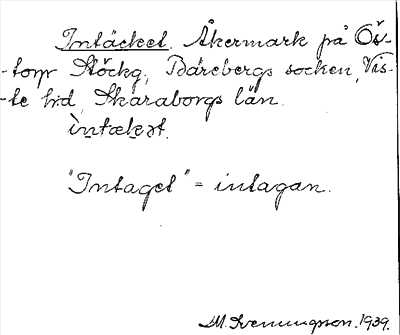 Intäcket. Åkermark på Ös-
-torp Stöckg., Bärebergs socken, Vis-
-te hd, Skaraborgs län.
ìntækət.
"Intaget" = intagan.
M. Svenungsson. 1939.